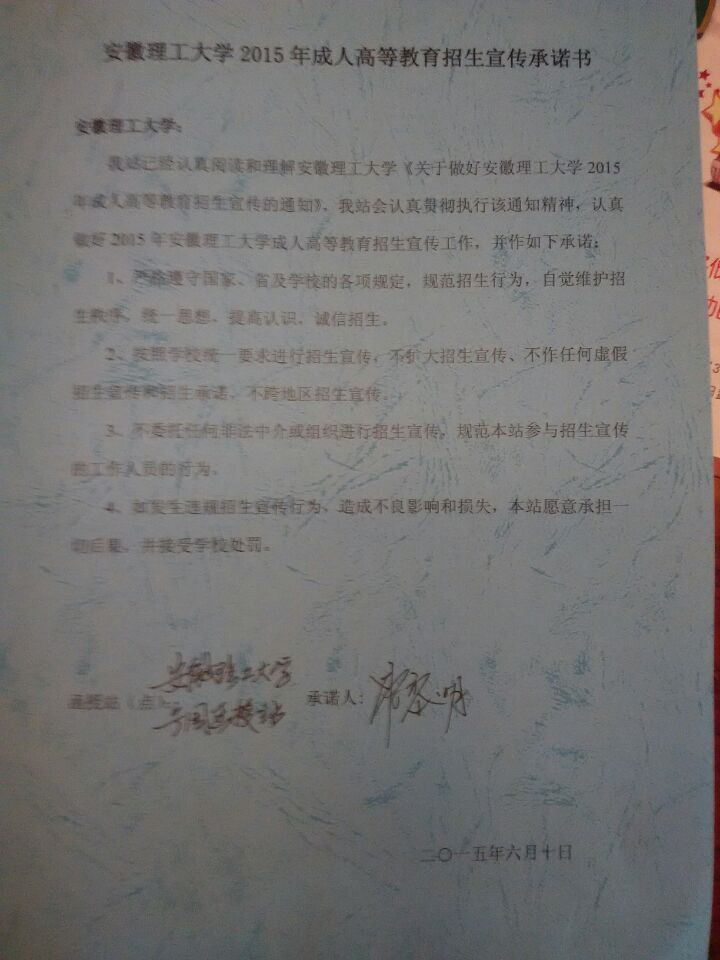 安徽理工大学 2015 年成人高等教育招生宣传承诺书
安徽理工大学：
我站已经认真阅读和理解安徽理工大学《关于做好安徽理工大学 2015
年成人高等教育招生宣传的通知》，我站会认真贯彻执行该通知精神，认真
做好 2015 年安徽理工大学成人高等教育招生宣传工作，并作如下承诺：
1、严格遵守国家、省及学校的各项规定，规范招生行为，自觉维护招
生秩序，统一思想，提高认识，诚信招生。
2、按照学校统一要求进行招生宣传，不扩大招生宣传、不作任何虚假
招生宣传和招生承诺，不跨地区招生宣传。
3、不委托任何非法中介或组织进行招生宣传，规范本站参与招生宣传
的工作人员的行为。
4、如发生违规招生宣传行为，造成不良影响和损失，本站愿意承担一
切后果，并接受学校处罚。
安徽理工大学
函授站（点）： 承诺人：
宁国函授站
二〇一五年六月十日